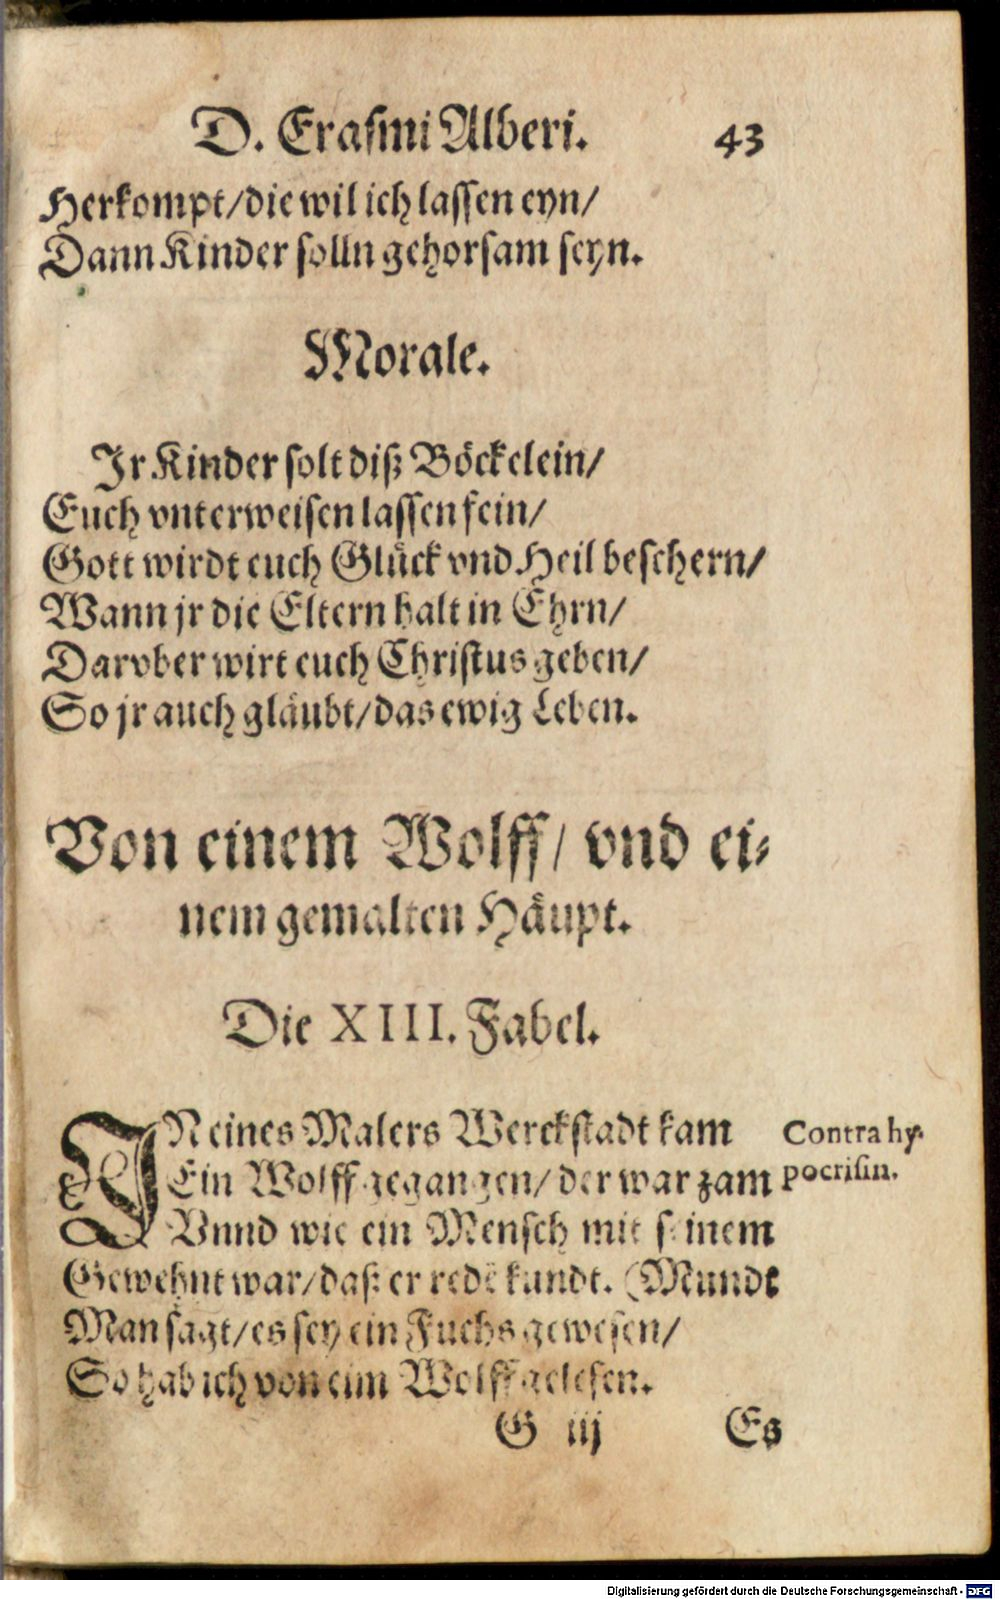 D. Erasmi Alberi. 43
Herkompt/die wil ich lassen eyn/
Dann Kinder solln gehorsam seyn.
Morale.
Jr Kinder solt diß Böckelein/
Euch vnterweisen lassen fein/
Gott wirdt euch Glück vnd Heil beschern/
Wann jr die Eltern halt in Ehrn/
Darvber wirt euch Christus geben/
So jr auch gläubt/das ewig Leben.
Von einem Wolff/ vnd ei⸗
nem gemalten Häupt.
Die XIII. Fabel.
JN eines Malers Werckstadt kam
Ein Wolff gegangen/ der war zam
Vnnd wie ein Mensch mit seinem
Gewehnt war/daß er redē kundt. (Mundt
Man sagt/es sey ein Fuchs gewesen/
So hab ich von eim Wolff gelesen.
Contra hy-
pocrisin.
G iij Es
Digitalisierung gefördert durch die Deutsche Forschungsgemeinschaft - DFG